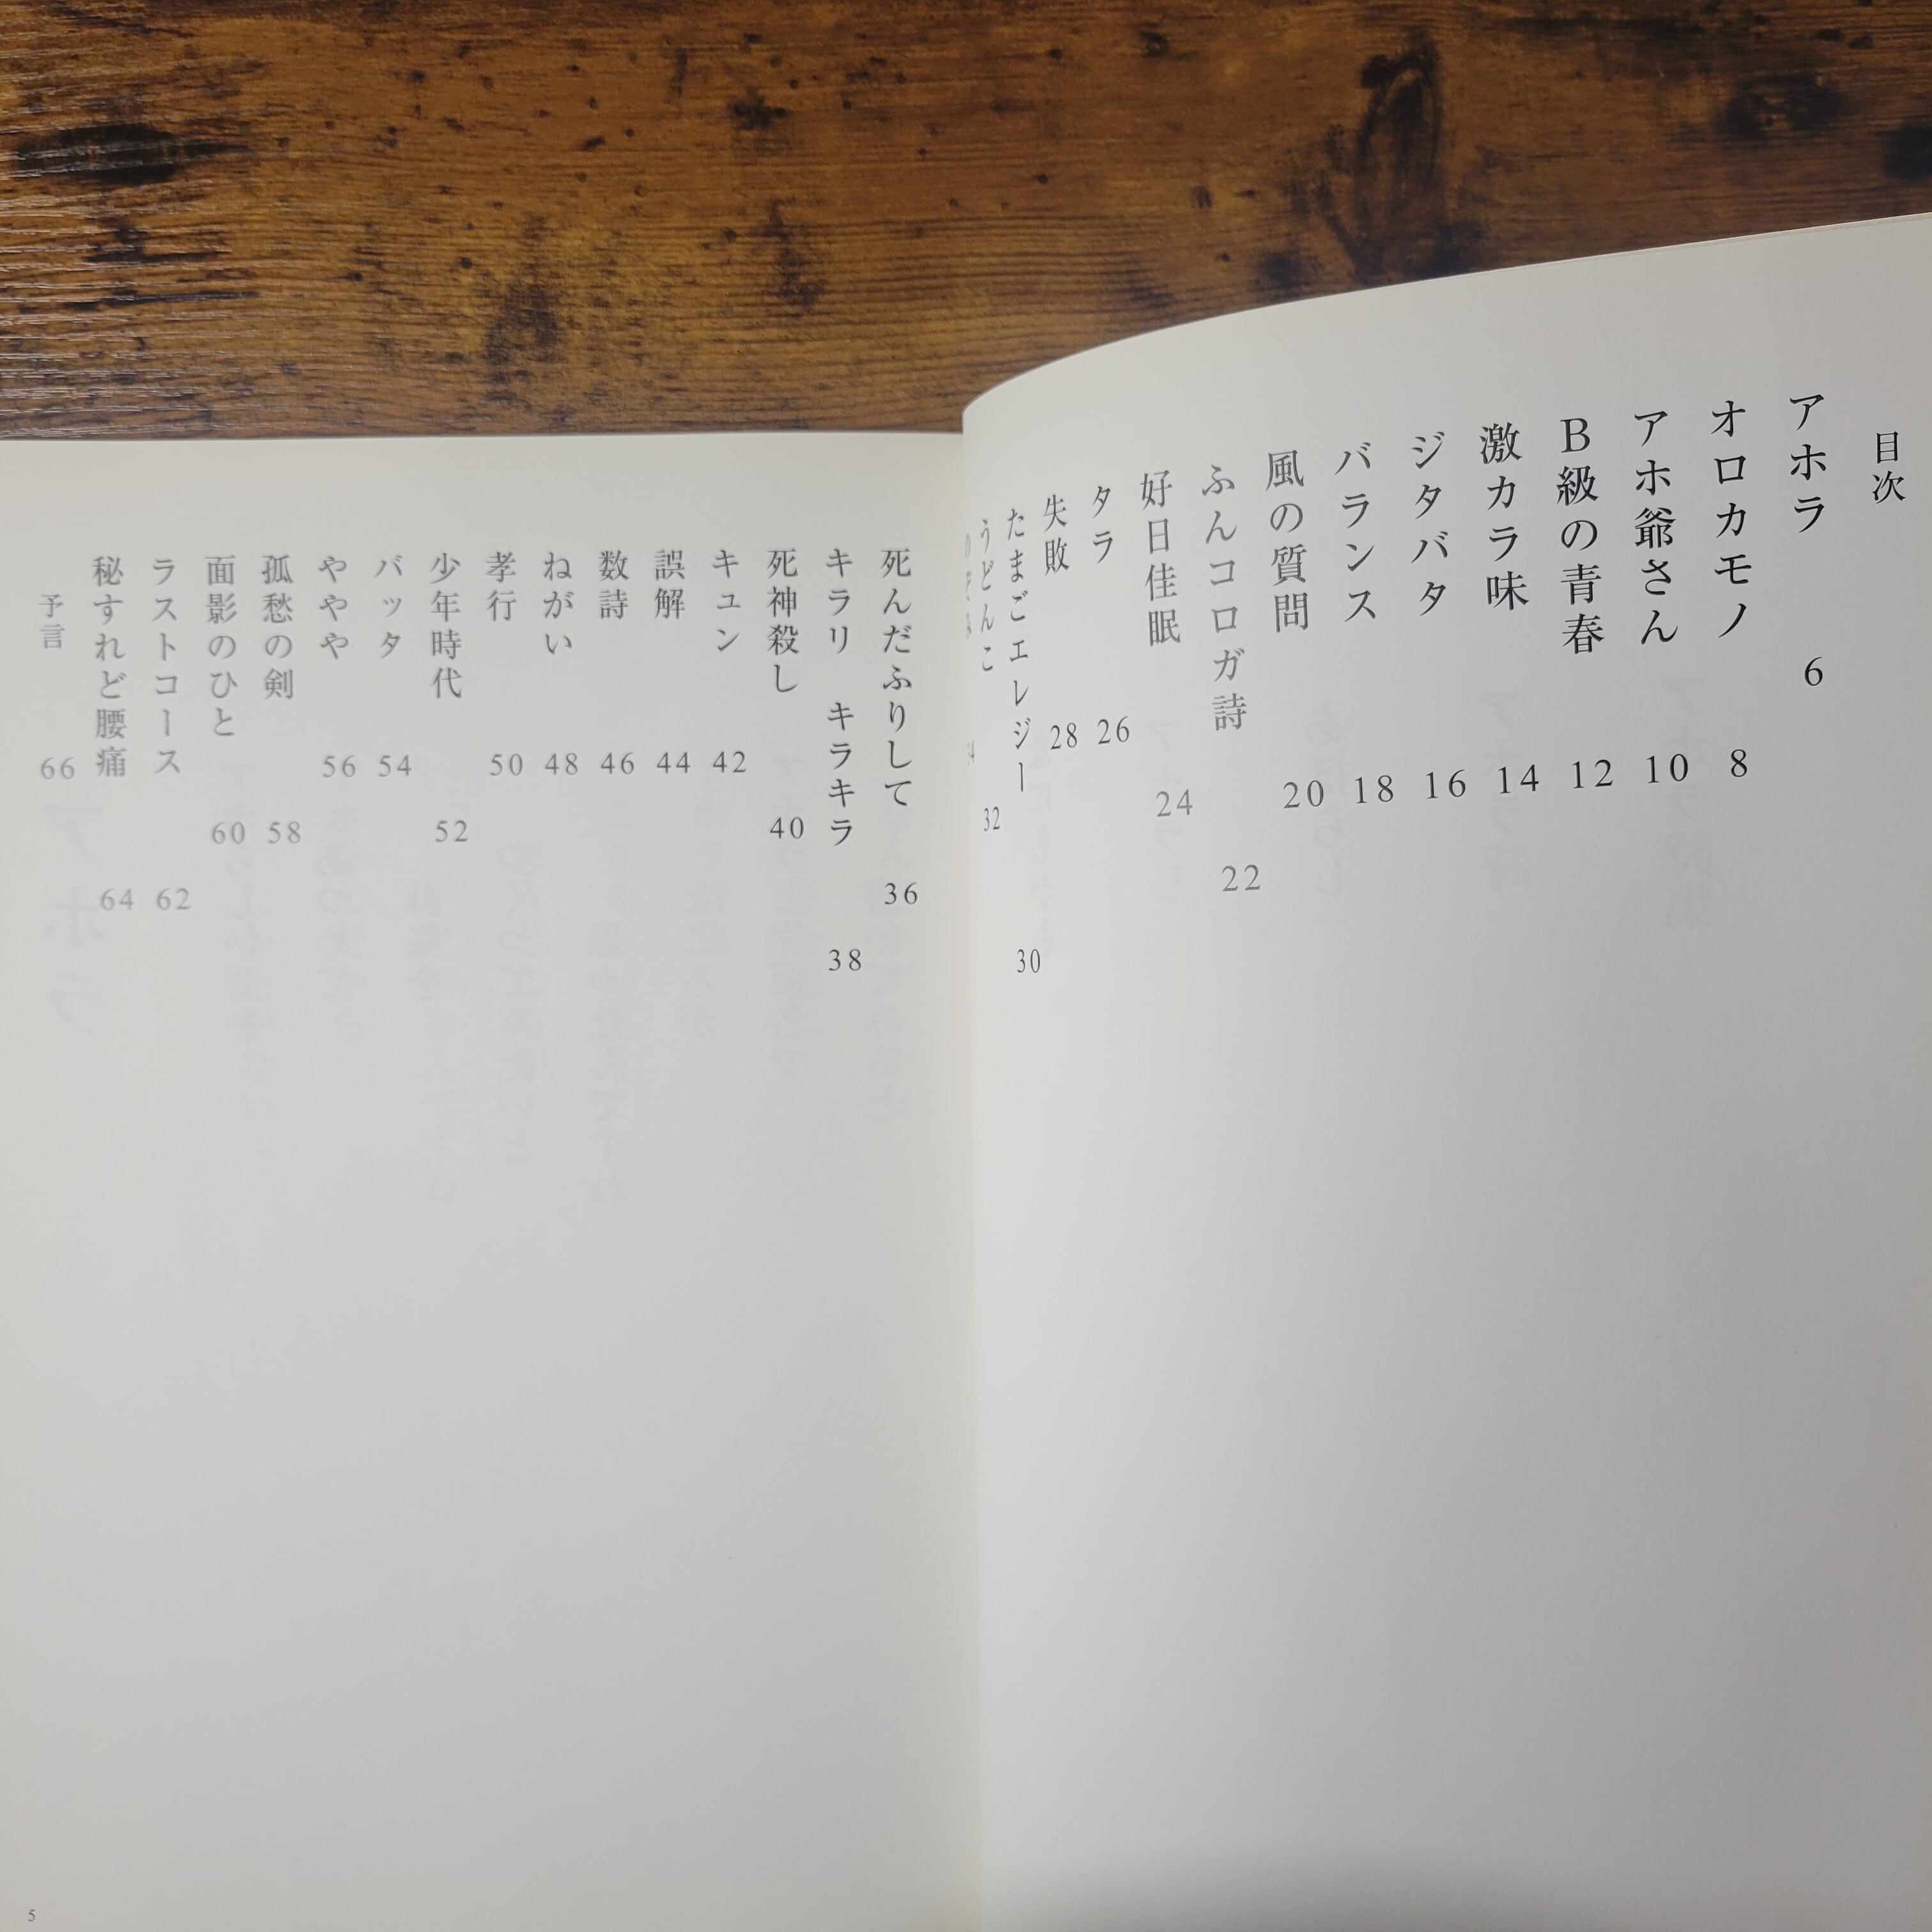 目次
アホラ 6
オロカモノ 8
アホ爺さん 10
B級の青春 12
激カラ味 14
ジタバタ 16
バランス 18
風の質問 20
ふんコロガ詩 22
好日佳眠 24
タラ 26
失敗 28
たまごエレジー 30
うどんこ 32
死んだふりして 36
キラリ キラキラ 38
死神殺し 40
キュン 42
誤解 44
数詩 46
ねがい 48
孝行 50
少年時代 52
バッタ 54
ややや 56
孤愁の剣 58
面影のひと 60
ラストコース 62
秘すれど腰痛 64
予言 66
5